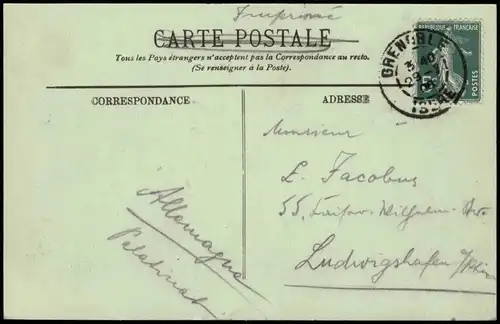 Imprimé
CARTE POSTALE
Tous les Pays étrangers n'acceptent pas la Correspondance au recto.
(Se renseigner à la Poste).
CORRESPONDANCE
ADRESSE
REPUBLIQUE FRANÇAISE
POSTES
GRENOBLE
ISERE
Monsieur
E. Jacobus
55. Kaiser-Wilhelm-Str.
Ludwigshafen a/Rhin
Allemagne
Palatinat